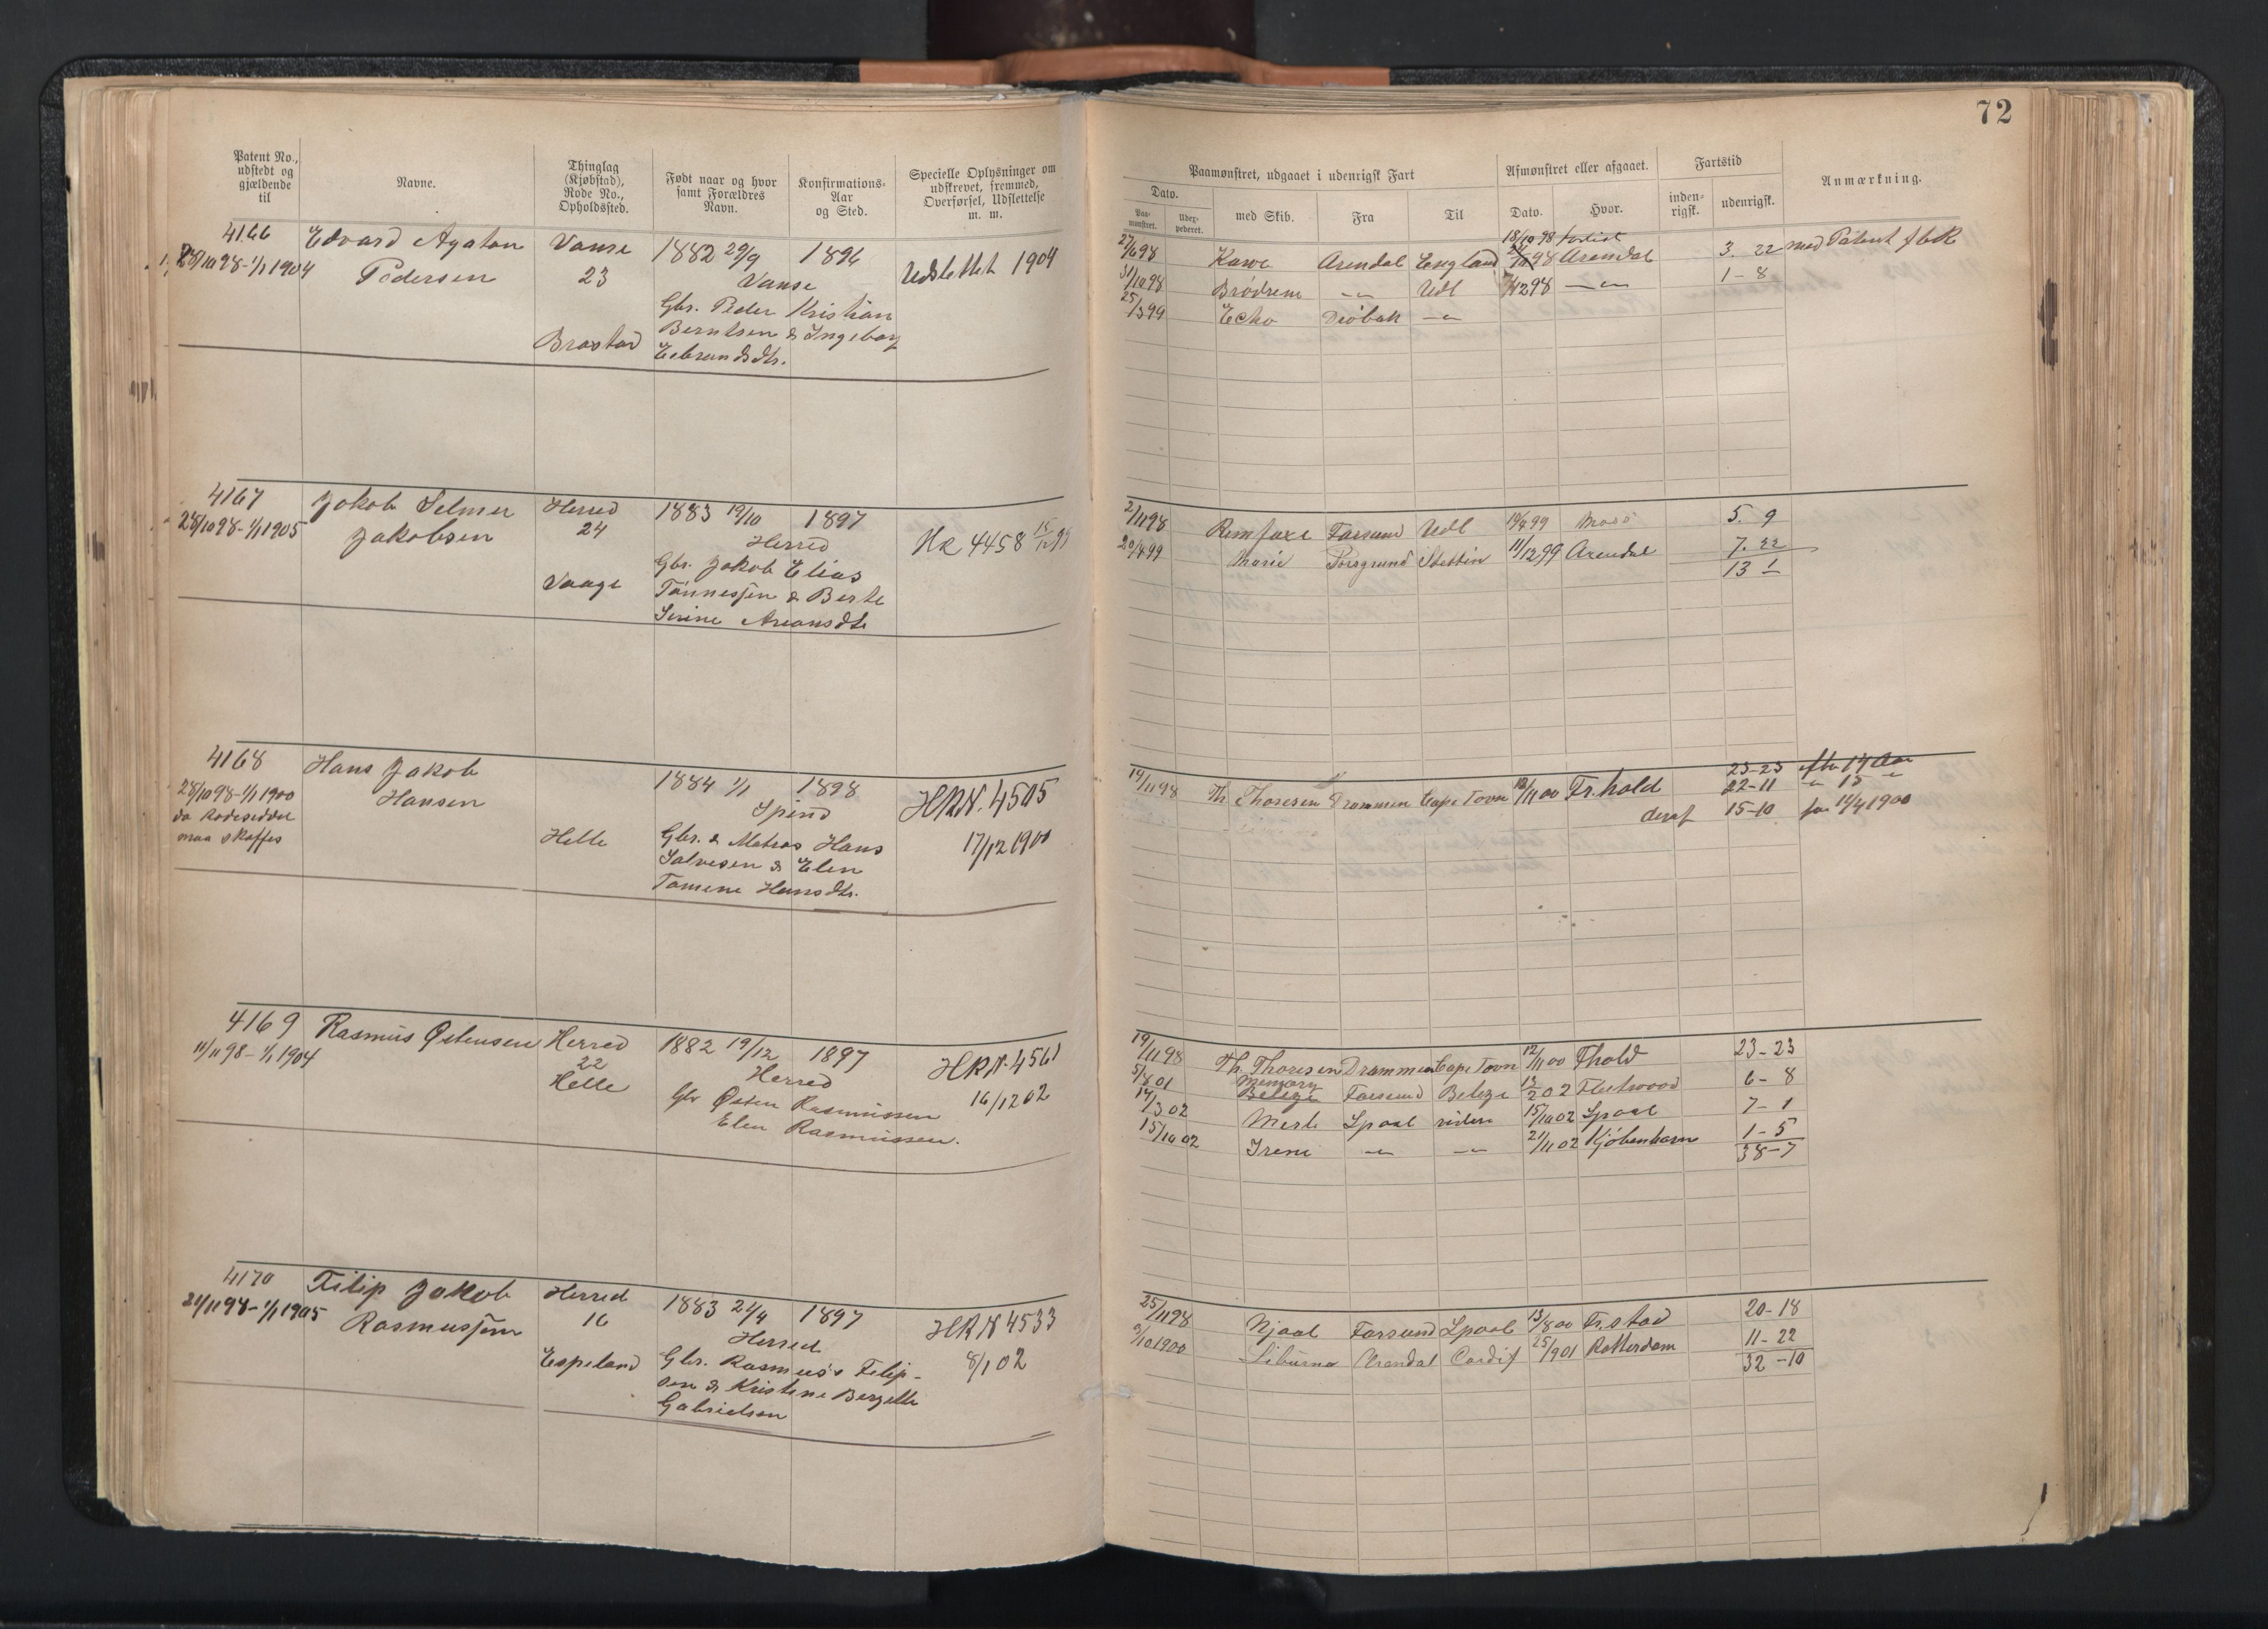 72
Patent No.,
udstedt og
gjældende
til
Navne.
Thinglag
(Kjøbstad),
Rode No.,
Opholdssted.
Født naar og hvor
samt Forældres
Navn.
Konfirmations-
Aar
og Sted.
Specielle Oplysninger om
udskrevet, fremmed,
Overførsel, Udslettelse
m. m.
Paamønstret, udgaaet i udenrigsk Fart
Afmønstret eller afgaaet.
Fartstid
Anmærkning.
Dato.
Paa-
mønstret.
med Skib.
Fra
Til
Dato.
Hvor.
inden-
rigsk.
udenrigsk.
4166
28/10 98 - 1/1 1904
Edvard Agaton
Pedersen
Vanse
23
Brastad
1882 29/9 1896
Vanse
Gbr. Peder Kristian
Berntsen & Ingeborg
Udslettet 1904
18/10 98 forlist
27/6 98 Arendal England 98 Arendal 3. 22 med Patent f b R
31/10 98 Brødrene -"- Udl 98 -"- 1-8
25/3 99 Echo Drøbak -"-
4167
28/10 98 - 1/1 1905
Jakob Selmer
Jakobsen
Herred
24
Vaage
1883 19/10 1897
Herred
Gbr. Jakob Elias
Tønnessen & Berte
Serine
HR 4458 15/12 99
2/11 98 Rimfaxe Farsund Udl 99 Moss 5. 9
20/4 99 Marie Porsgrund Stettin 11/12 99 Arendal 7. 22
13 1
4168
28/10 98 - 1/1 1900
da Rodeseddel
maa skaffes
Hans Jakob
Hansen
Helle
1884 1/1 1898
Spind
Gbr. & Matros Hans
Salvesen & Elen
Tomine Hansdtr.
HRN. 4505
17/12 1900
19/11 98 Th. Thoresen Drammen Cape Town 12/11 00 Fr.hald
23-23 efter 14 Aar
22-11 " 15 "
deraf 15-10 før 1900
4169
11/11 98 - 1/1 1904
Rasmus Østensen
Herred
22
Helle
1882 19/12 1897
Herred
Gbr Østen Rasmussen
Elen Rasmussen.
HRN. 4561
16/12 02
19/11 98 Th. Thoresen Drammen Cape Town 12/11 00 Fhald 23-23
Memory
5/8 01 Belize Farsund Belize 02 Fleetwood 6-8
3 02 Merle Lpool videre 15/10 02 Lpool 7-1
15/10 02 Irene -"- -"- 21/11 02 Kjøbenhavn 1-5
38-7
4170
24/11 98 - 1/1 1905
Filip Jakob
Rasmussen
Herred
16
Espeland
1883 24/4 1897
Herred
Gbr. Rasmus Filip-
sen & Kristine Bergette
Gabrielsen
HRN 4533
8/1 02
25/11 98 Njaal Farsund Lpool 13/8 00 Fr.stad 20-18
9/10 1900 Liburna Arendal Cardif 25/9 01 Rotterdam 11-22
32-10